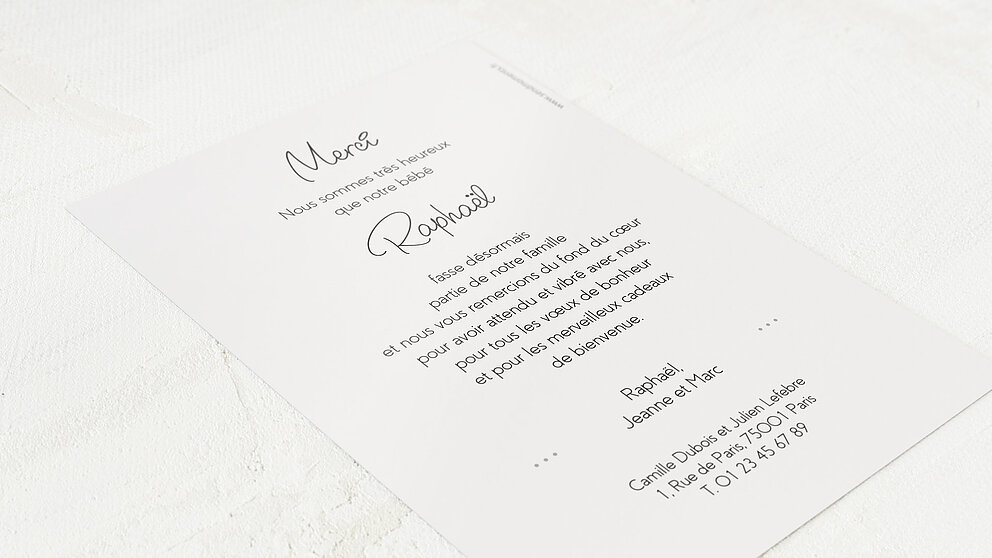 Merci
Nous sommes très heureux
que notre bébé
Raphaël
fasse désormais
partie de notre famille
et nous vous remercions du fond du cœur
pour avoir attendu et vibré avec nous,
pour tous les vœux de bonheur
et pour les merveilleux cadeaux
de bienvenue.
Raphaël,
Jeanne et Marc
Camille Dubois et Julien Lefebre
1, Rue de Paris, 75001 Paris
T. 01 23 45 67 89